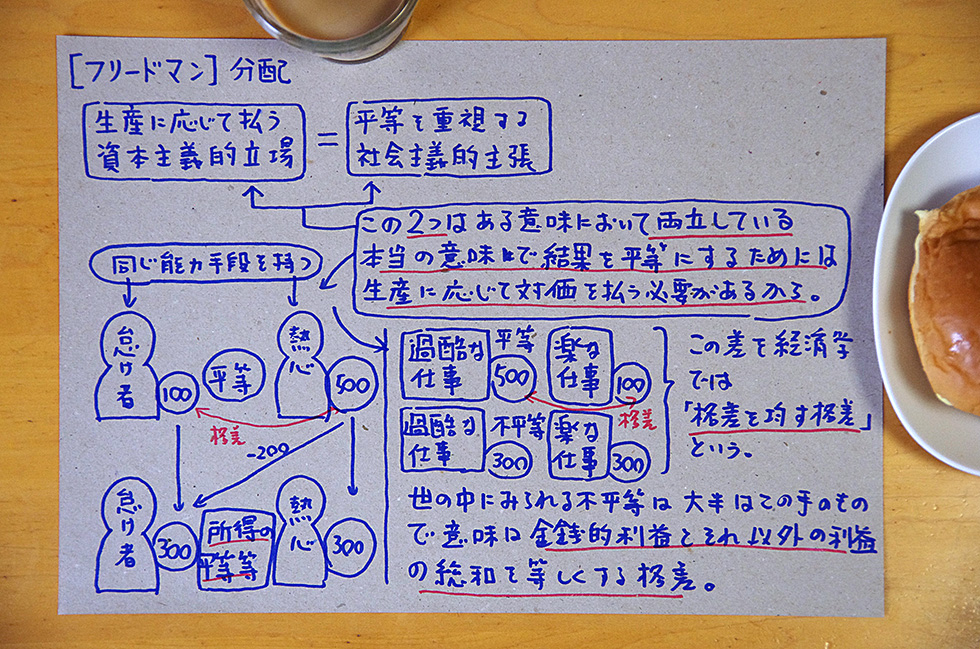 [フリードマン] 分配
生産に応じて払う
資本主義的立場
=
平等を重視する
社会主義的主張
この2つはある意味において両立している
本当の意味上で結果を平等にするためには
生産に応じて対価を払う必要があるから。
同じ能力手段を持つ
怠け者
100
平等
熱心
500
格差
-200
怠け者
300
所得の
平等等
熱心
300
過酷な
仕事
平等
500
楽な
仕事
100
格差
過酷な
仕事
不平等
300
楽な
仕事
300
この差を経済学
では
「格差を均す格差」
という。
世の中にみられる不平等は大半はこの手のもの
で意味は金銭的利益とそれ以外の利益
の総和を等しくする格差。